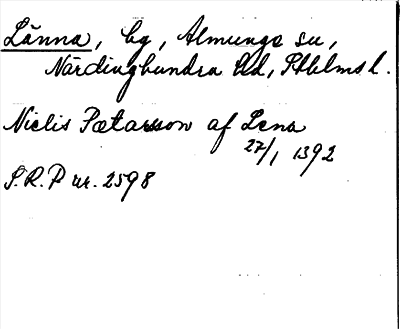 Länna, by, Almunge sn,
Närdinghundra hd, Sthlms l.
Niclis Pætarsson af Lena
27/1 1392
S.R.P nr. 2598